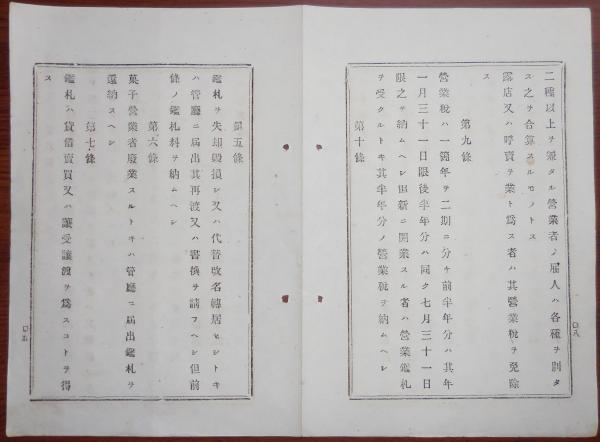 二種以上ヲ兼タル營業者ノ雇人ハ各種ヲ別タ
ス之ヲ合算スルモノトス
露店又ハ呼賣ヲ業ト爲ス者ハ其營業税ヲ免除
ス
第九條
營業税ハ一箇年ヲ二期ニ分チ前半年分ハ其年
一月三十一日限後半年分ハ同ク七月三十一日
限之ヲ納ムヘシ但新ニ開業スル者ハ營業鑑札
ヲ受クルトキ其半年分ノ營業税ヲ納ムヘシ
第十條
第五條
鑑札ヲ失却毀損シ又ハ代替改名轉居セシトキ
ハ管廳ニ届出其再渡又ハ書換ヲ請フヘシ但前
條ノ鑑札料ヲ納ムヘシ
第六條
菓子營業者廢業スルトキハ管廳ニ届出鑑札ヲ
還納スヘシ
第七條
鑑札ハ貸借賣買又ハ讓受讓渡ヲ爲スコトヲ得
ス